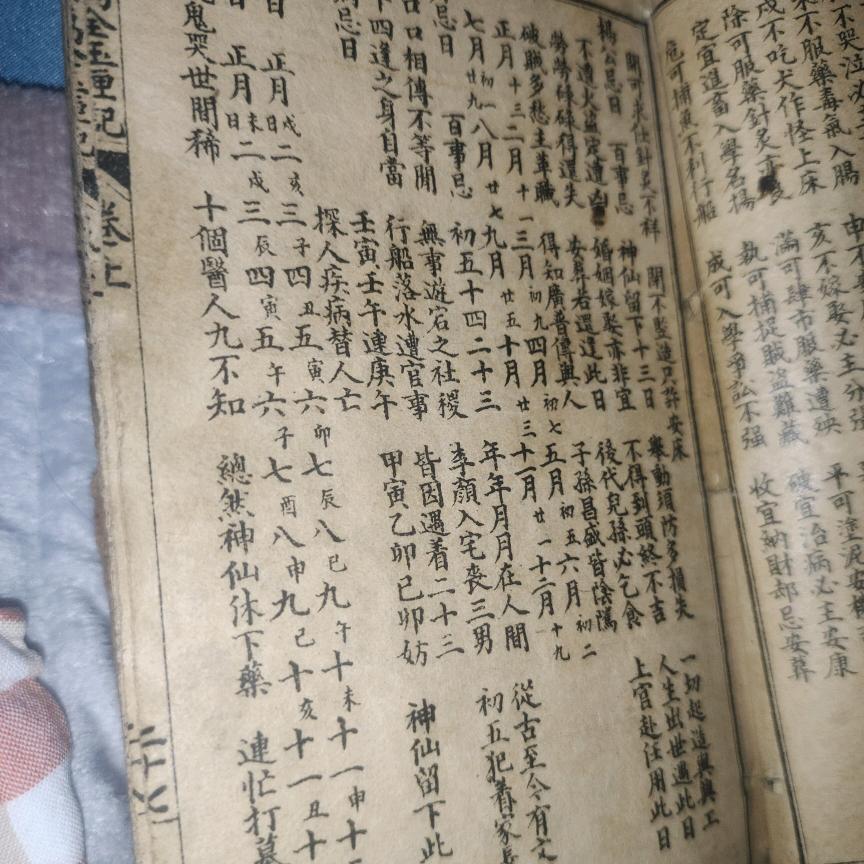 不哭泣必
不服藥毒氣入腸 亥不嫁娶必主分張 平可塗泥安機
戌不吃犬作怪上床 滿可肆市服藥遭殃 破宜治病必主安康
除可服藥針灸亦良 執可捕捉賊盜難藏 收宜納財却忌安葬
定宜進畜入學名揚 成可入學爭訟不强
危可捕魚不利行船
開可求仕針灸不祥 閉不竪造只許安床
楊公忌日 百事忌 神仙留下十三日 舉動須防多損失 一切起造與興工
不遭火盜定遭凶 婚姻嫁娶亦非宜 不得到頭終不吉 人生出世遇此日
勞勞碌碌得還失 安葬若還逢此日 後代兒孫必乞食 上官赴任用此日
破聯多愁主革職 得知廣普傳與人 子孫昌盛皆陰隲
正月十三 二月十一 三月初九 四月初七 五月初五 六月初二
七月初一廿九 八月廿七 九月廿五 十月廿三 十一月廿一 十二月十九
忌日 百事忌 初五十四二十三 年年月月在人間 從古至今有文
口口相傳不等閒 無事遊宕之社稷 李顏入宅喪三男 初五犯着家長
十四逢之身自當 行船落水遭官事 皆因遇着二十三
忌日 壬寅壬午連庚午 甲寅乙卯己卯妨 神仙留下此
探人疾病替人亡
日 正月戌日 二亥 三子 四丑 五寅 六卯 七辰 八巳 九午 十未 十一申 十
日 正月未日 二戌 三辰 四寅 五午 六子 七酉 八申 九巳 十亥 十一丑 十
鬼哭世間稀 十個醫人九不知 總然神仙休下藥 連忙打墓
金玉匣記 卷上 二十七